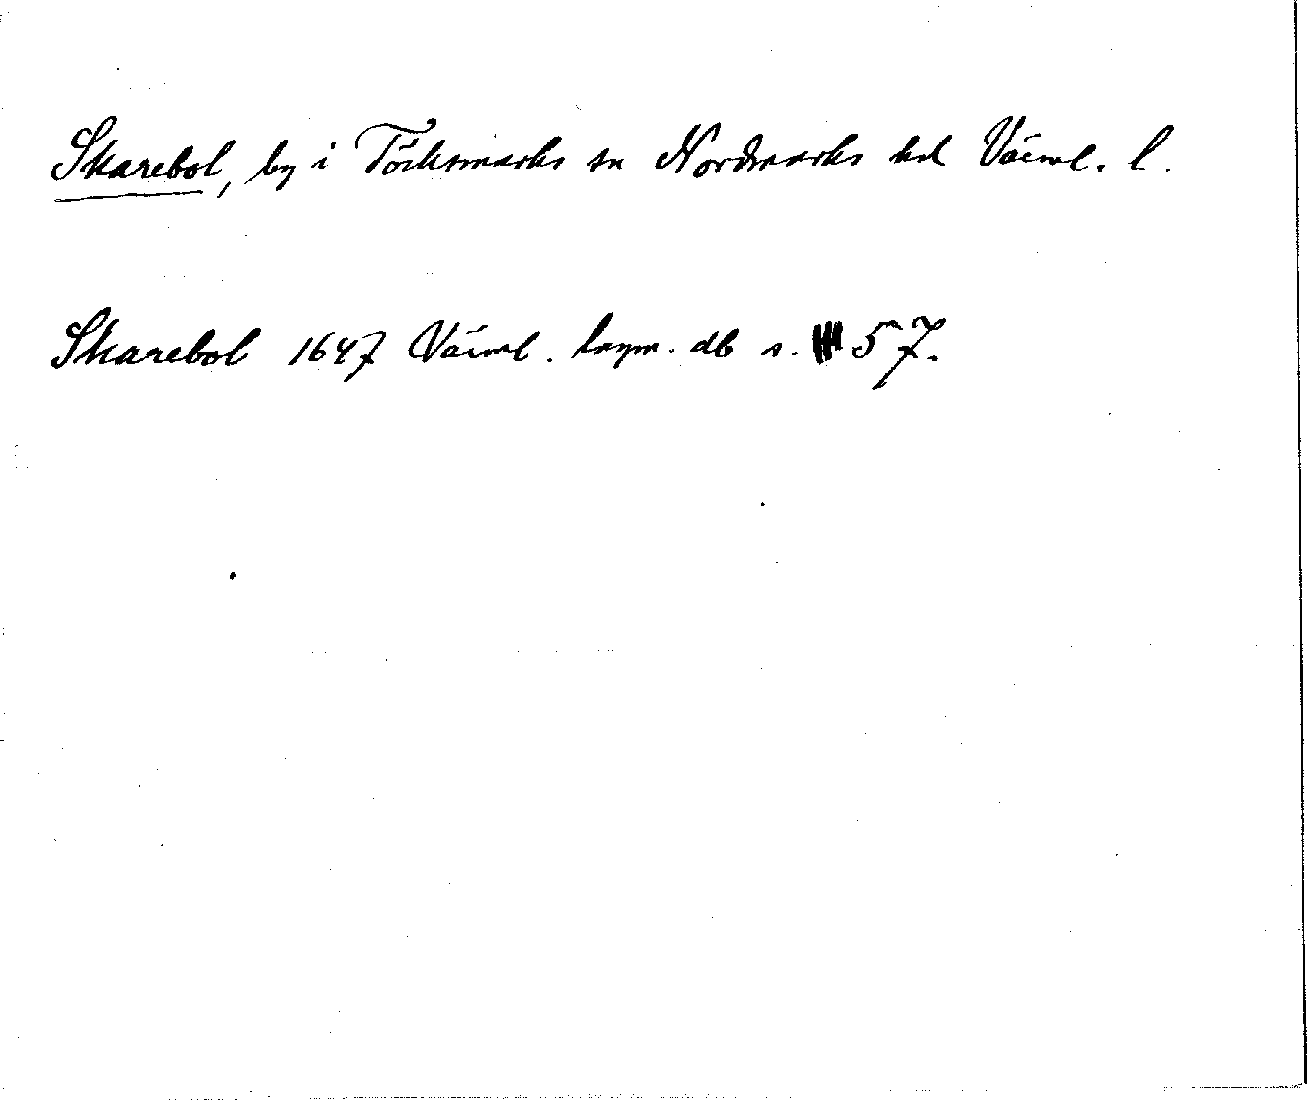 Skarebol, by i Töcksmarks sn Nordmarks hd Värml. l.
Skarebol 1647 Värml. lagm. db s. 57.